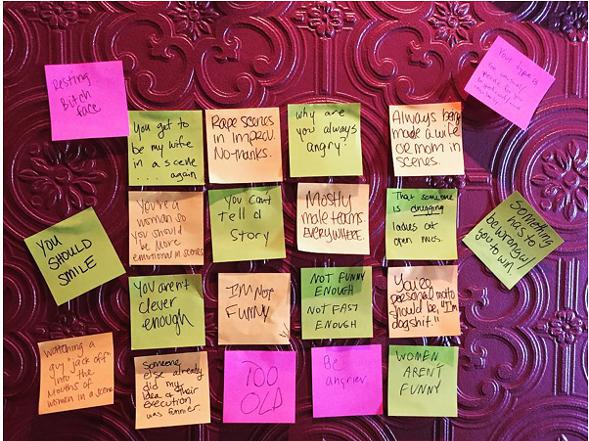 Resting
Bitch
face
You get to
be my wife
in a scene
.... again
Rape scenes
in Improv.
No thanks.
why are
you always
angry?
Always being
made a wife
or mom in
scenes.
Your type is
YOU
SHOULD
SMILE
You're a
woman so
you should
be more
emotional in scenes
You can't
tell a
Story
Mostly
male teams.
EVERYWHERE.
That someone
is drugging
ladies at
open mics.
Something
has to
be wrong w/
you to win.
You aren't
clever
enough
I'm Not
FUNNY
NOT FUNNY
ENOUGH
NOT FAST
ENOUGH
Your
personal motto
should be, "I'm
dogshit."
Watching a
guy jack off
into the
Mouths of
women in a scene
Someone
else already
did my
idea & their
execution
was funnier.
TOO
OLD
Be
angrier
WOMEN
AREN'T
FUNNY